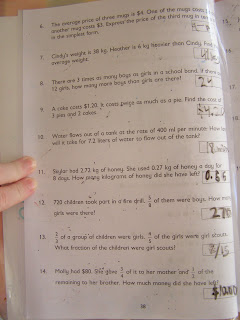 6. The average price of three mugs is $4. One of the mugs costs
another mug costs $3. Express the price of the third mug in
in the simplest form.
7. Cindy's weight is 38 kg. Heather is 6 kg heavier than Cindy. Find
average weight.
8. There are 3 times as many boys as girls in a school band. If there
12 girls, how many more boys than girls are there?
9. A coke costs $1.20. It costs twice as much as a pie. Find the cost of
3 pies and 2 cokes.
10. Water flows out of a tank at the rate of 400 ml per minute. How
will it take for 7.2 liters of water to flow out of the tank?
11. Skyler had 2.72 kg of honey. She used 0.27 kg of honey a day for
8 days. How many kilograms of honey did she have left?
0.56
12. 720 children took part in a fire drill. 5/8 of them were boys. How many
girls were there?
270
13. 2/3 of a group of children were girls. 4/5 of the girls were girl scouts.
What fraction of the children were girl scouts?
8/15
14. Molly had $80. She gave of it to her mother and of the
remaining to her brother. How much money did she have left?